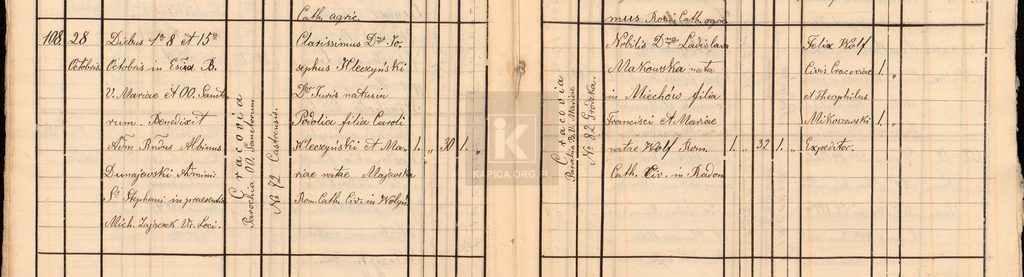 Cath. agric.
mus Rom. Cath. agric
108. 28
Octobris.
Diebus 1ª 8 et 15ª
Octobris in Eccla B.
V. Mariae et OO. Sancto
rum. Benedixit
Adm Rndus Albinus
Dunajewski Admini
St Stephani in praesentia
Mich. Zajączek Vic. Loci.
Cracovia
Parochia OO. Sanctorum
No 72 Castrensis.
Clarissimus Dnus Jo-
sephus Kleczyński
Dr Juris natus in
Podolia filia Caroli
Kleczyński et Ma-
riae natae Majewska
Rom. Cath. Civ. in Wołyń
1. " 30 1. "
Cracovia
Parochia B.V. Mariae
No 82 Grodzka.
Nobilis Dna Ladislava
Makowska nata
in Miechów filia
Francisci et Mariae
natae Wolf Rom.
Cath. Civ. in Radom
1. " 32 1. "
Felix Wolf
Civis Cracoviae
et Theophilus
Mikoszewski
Expeditor.
1. "
1. "
K
KAPICA.ORG.PL